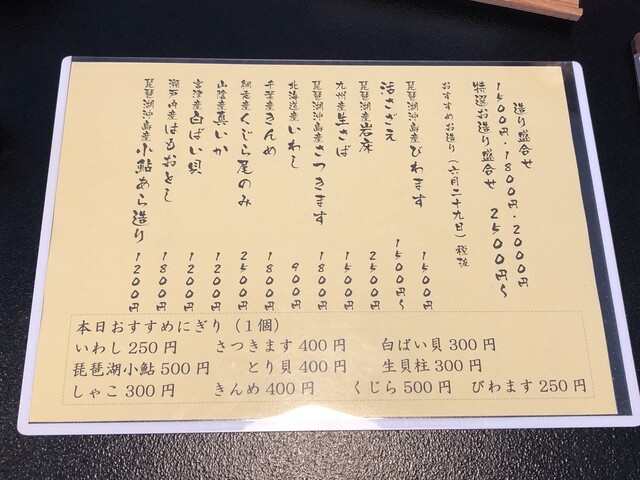 造り盛合せ
1500円・1800円・2000円
特選お造り盛合せ 2500円〜
おすすめお造り（六月二十九日）税抜
琵琶湖沖島産びわます 1500円
活さざえ 1500円〜
琵琶湖産岩床 2500円
九州産生さば 1500円
琵琶湖沖島産さつきます 1800円
北海道産いわし 900円
千葉産きんめ 1800円
網走産くじら尾のみ 2500円
山陰産真いか 1200円
宮津産白ばい貝 1200円
瀬戸内産はもおとし 1800円
琵琶湖沖島産小鮎あら造り 1200円
本日おすすめにぎり（1個）
いわし250円 さつきます400円 白ばい貝300円
琵琶湖小鮎500円 とり貝400円 生貝柱300円
しゃこ300円 きんめ400円 くじら500円 びわます250円